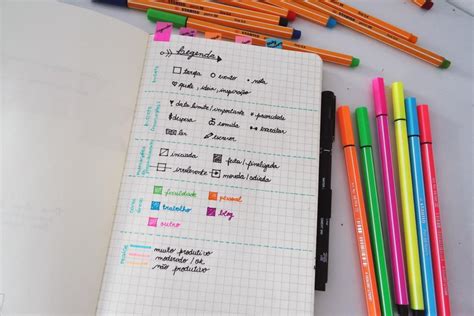 Legenda
tarefa evento nota
quote, ideia, inspiração
data limite/importante prioridade
despesa comida exercitar
ler escrever
iniciada feita/finalizada
irrelevante movida/adiada
faculdade pessoal
trabalho blog
outro
muito produtivo
moderado/ok
não produtivo